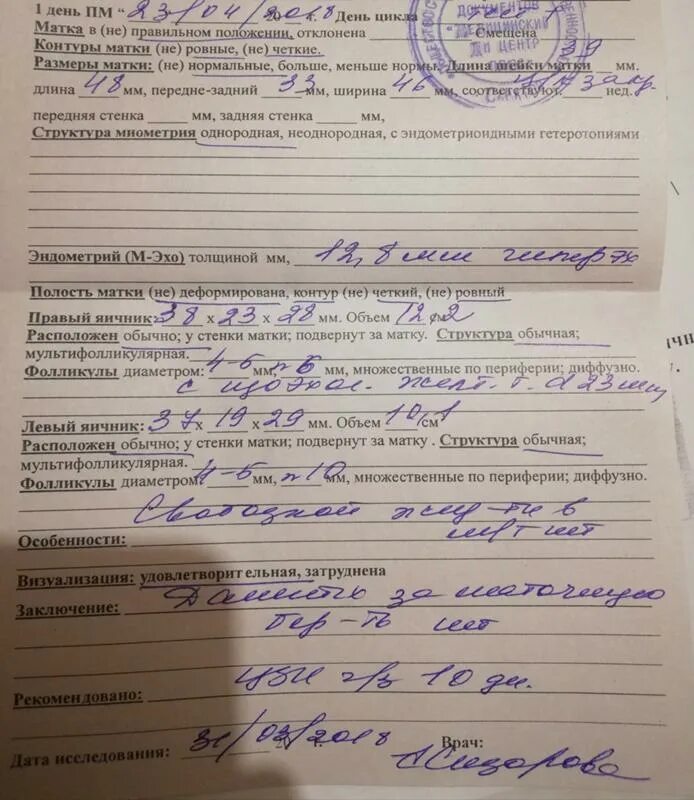 1 день ПМ “ 23/04/2018 г. День цикла
Матка в (не) правильном положении, отклонена Смещена
Контуры матки (не) ровные, (не) четкие. 39
Размеры матки: (не) нормальные, больше, меньше нормы. Длина шейки матки мм.
длина 48 мм, передне-задний 33 мм, ширина 46 мм, соответствуют закр. нед.
передняя стенка мм, задняя стенка мм,
Структура миометрия однородная, неоднородная, с эндометриоидными гетеротопиями
Эндометрий (М-Эхо) толщиной мм, 12,8 мм гиперэх
Полость матки (не) деформирована, контур (не) четкий, (не) ровный
Правый яичник: 38 х 23 х 28 мм. Объем 12,2 см
Расположен обычно; у стенки матки; подвернут за матку. Структура обычная;
мультифолликулярная.
Фолликулы диаметром: 4-6 мм, n 6 мм, множественные по периферии; диффузно.
с желт. т. d 23 мм
Левый яичник: 37 х 19 х 29 мм. Объем 10,1 см
Расположен обычно; у стенки матки; подвернут за матку . Структура обычная;
мультифолликулярная.
Фолликулы диаметром: 4-6 мм, n 10 мм, множественные по периферии; диффузно.
Свободной жид-ти в
Особенности: м/т нет
Визуализация: удовлетворительная, затруднена
Заключение: Данных за маточную
бер-ть нет
Рекомендовано: УЗИ ч/з 10 дн.
Дата исследования: 31/03/2018 г. Врач:
ДОКУМЕНТОВ
МЕДИЦИНСКИЙ
ЦЕНТР